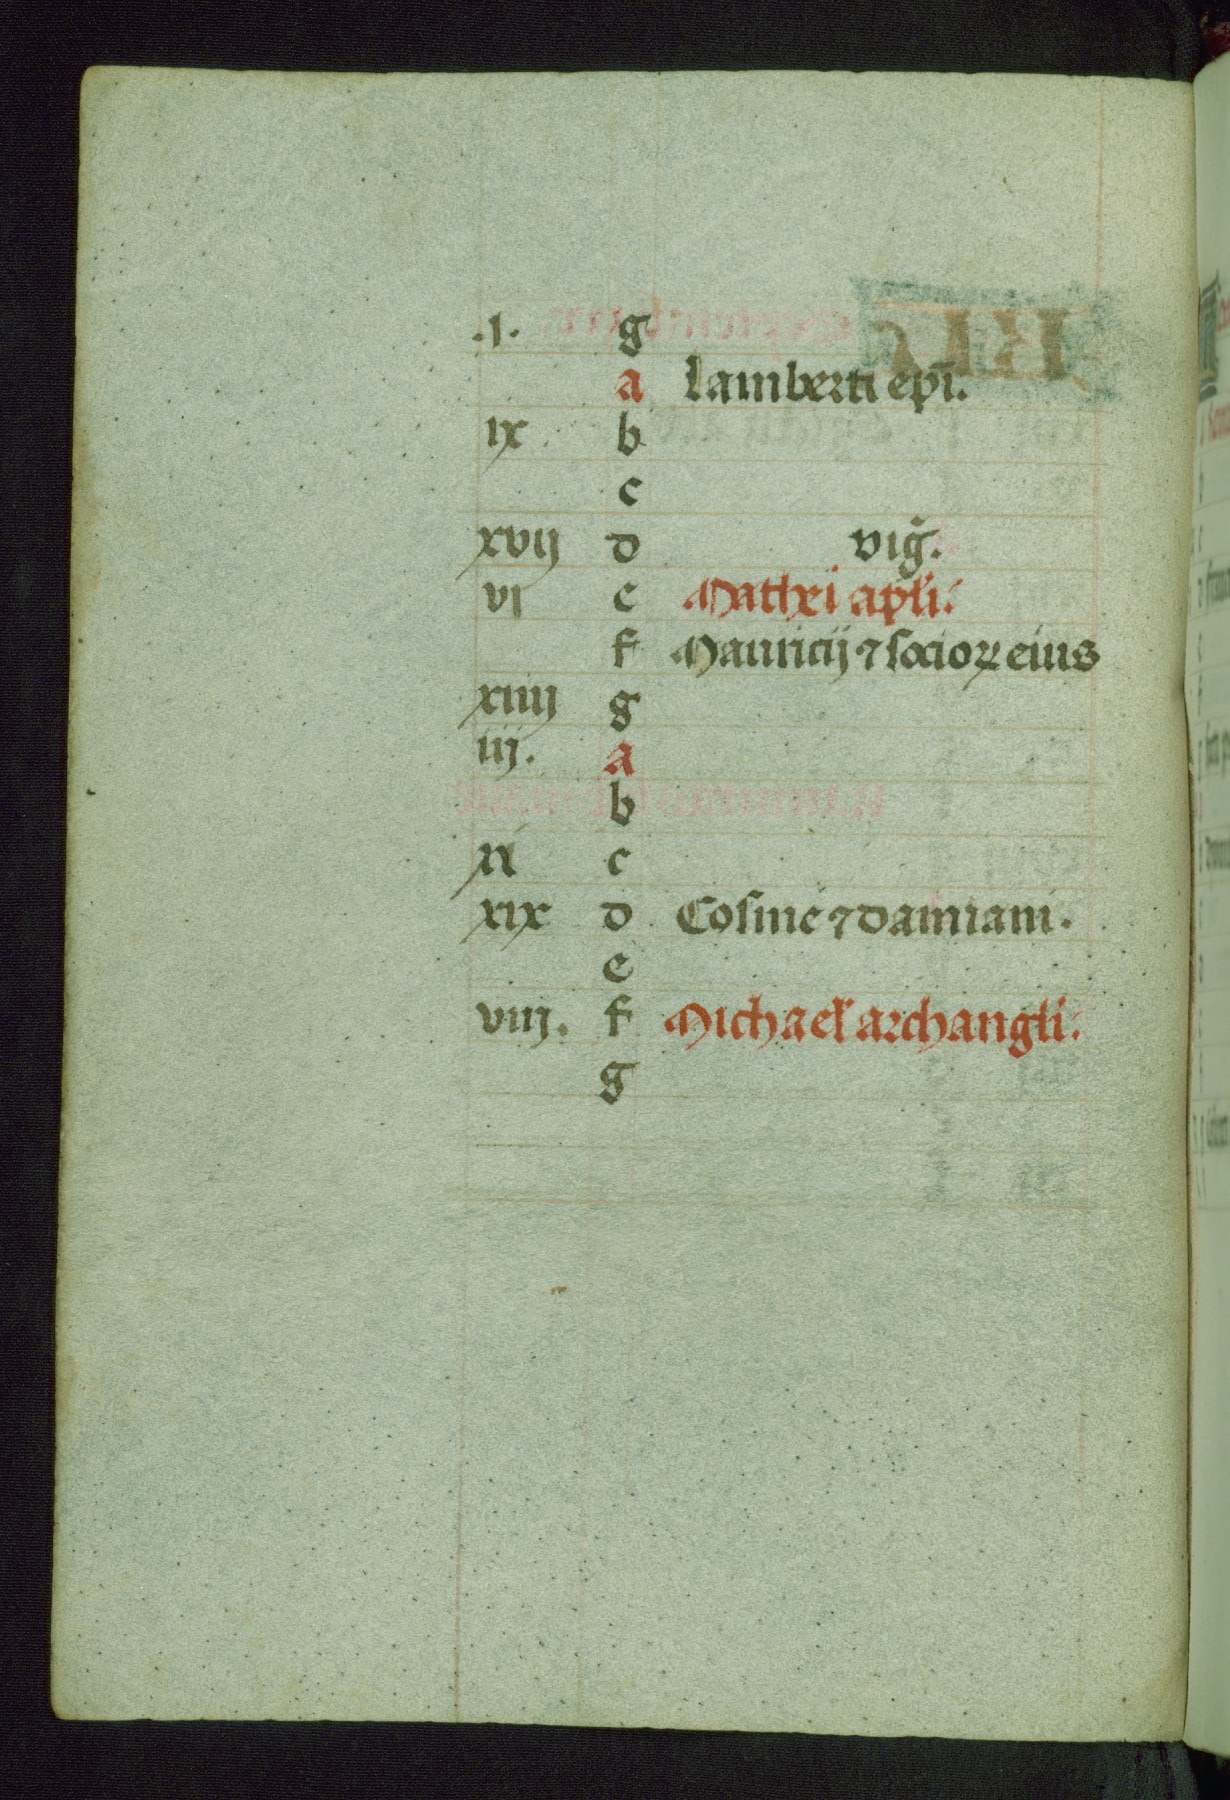 .I. g
a Lamberti ep̄i.
ix b
c
xvij d vig̃.
vi e Mathei apl̓i.
f Mauricij ⁊ socioꝝ eius
xiiij g
iij. a
b
xi c
xix d Cosme ⁊ damiani.
e
viij. f Michael̓ archangl̓i.
g